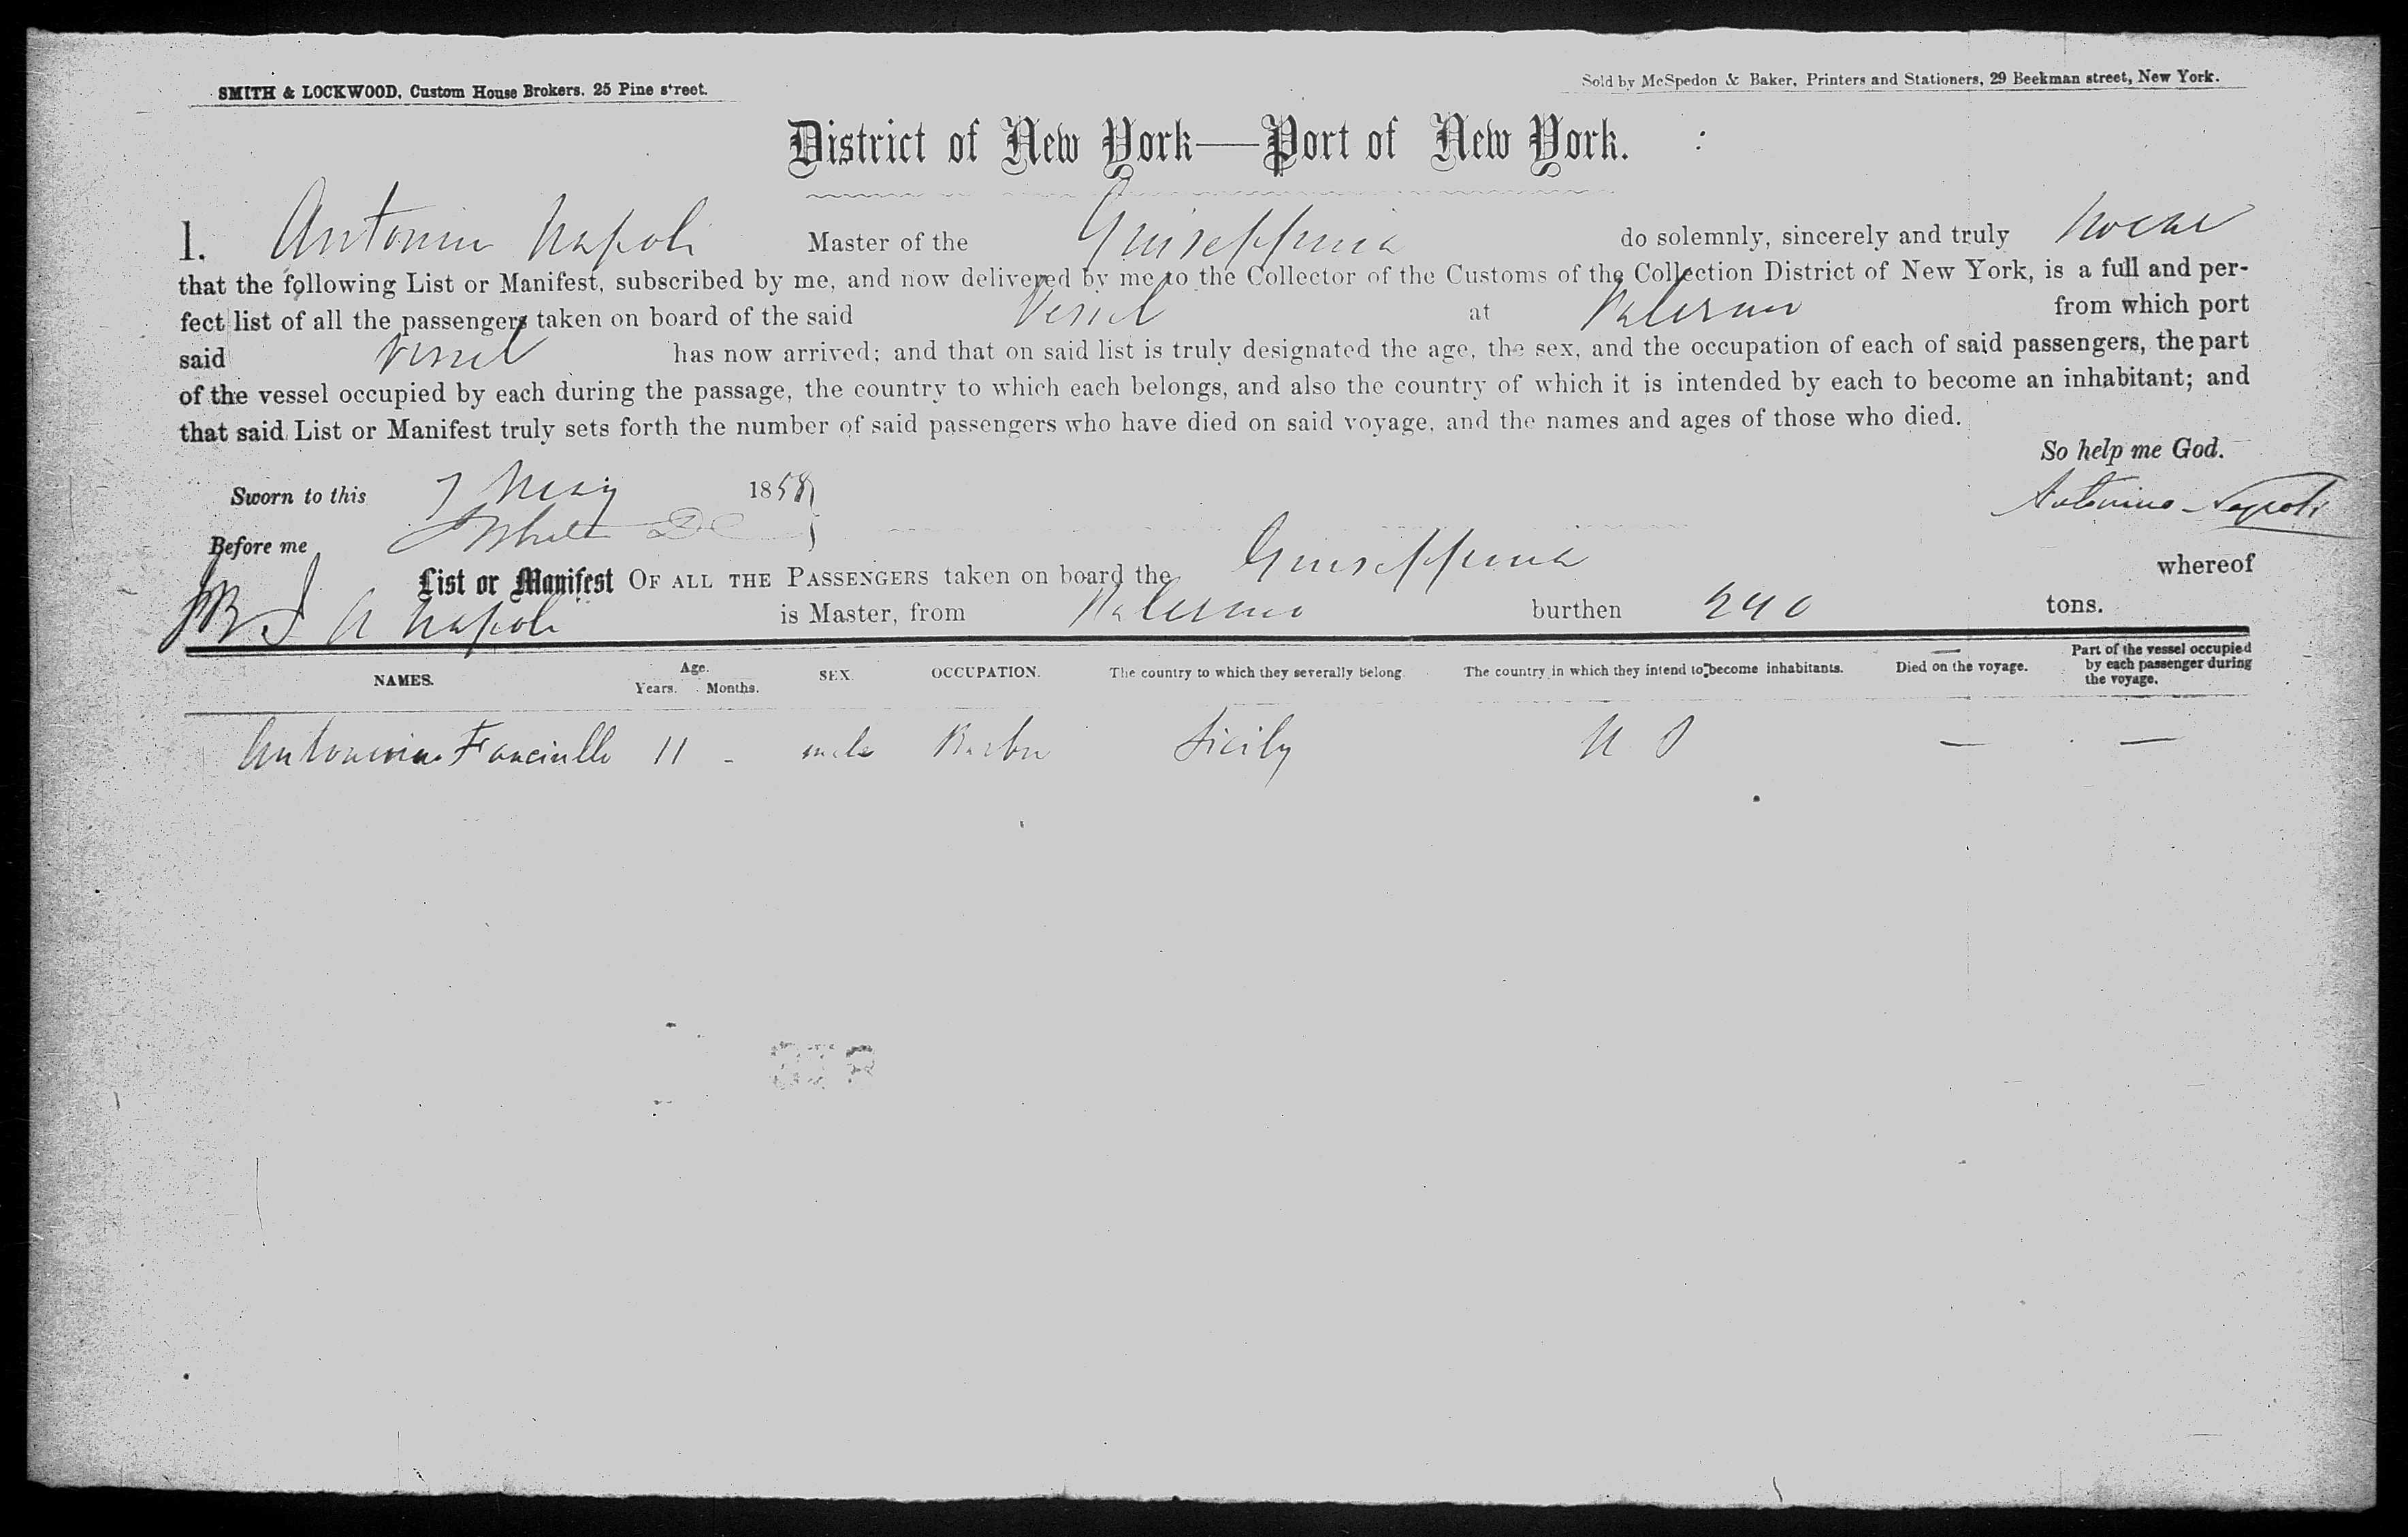 SMITH & LOCKWOOD, Custom House Brokers. 25 Pine street.
Sold by McSpedon & Baker, Printers and Stationers, 29 Beekman street, New York.
District of New York—Port of New York.
I. Antonin Napoli Master of the Guiseppinia do solemnly, sincerely and truly swear
that the following List or Manifest, subscribed by me, and now delivered by me to the Collector of the Customs of the Collection District of New York, is a full and per-
fect list of all the passengers taken on board of the said Vessel at Palermo from which port
said Vessel has now arrived; and that on said list is truly designated the age, the sex, and the occupation of each of said passengers, the part
of the vessel occupied by each during the passage, the country to which each belongs, and also the country of which it is intended by each to become an inhabitant; and
that said List or Manifest truly sets forth the number of said passengers who have died on said voyage, and the names and ages of those who died.
So help me God.
Sworn to this 7 May 1858
Antonino Napoli
Before me
List or Manifest OF ALL THE PASSENGERS taken on board the Guiseppinia whereof
A Napoli is Master, from Palermo burthen 240 tons.
NAMES. Age. Years. Months. SEX. OCCUPATION. The country to which they severally belong. The country in which they intend to become inhabitants. Died on the voyage. Part of the vessel occupied by each passenger during the voyage.
Fanciullo 11 - male Barber Sicily U S — —